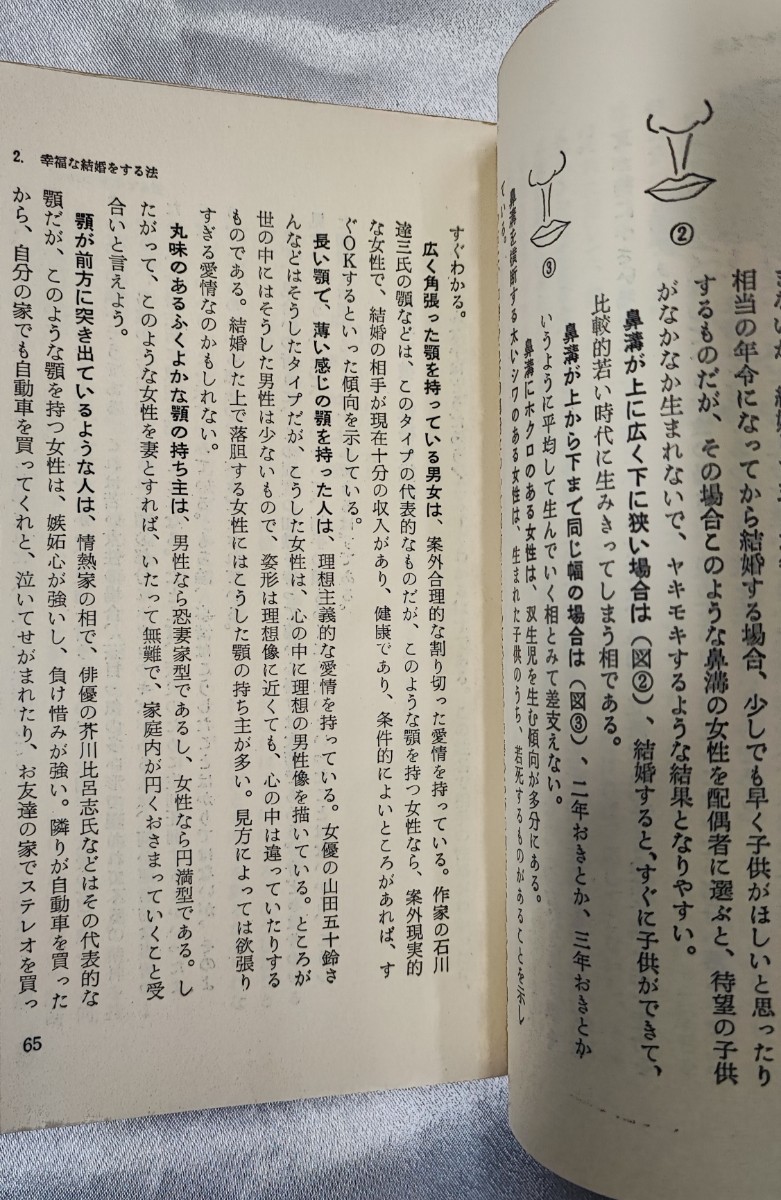 相当の年令になってから結婚する場合、少しでも早く子供がほしいと思ったり
するものだが、その場合このような鼻溝の女性を配偶者に選ぶと、待望の子供
がなかなか生まれないで、ヤキモキするような結果となりやすい。
鼻溝が上に広く下に狭い場合は(図②)、結婚すると、すぐに子供ができて、
比較的若い時代に生みきってしまう相である。
鼻溝が上から下まで同じ幅の場合は(図③)、二年おきとか、三年おきとか
いうように平均して生んでいく相とみて差支えない。
鼻溝にホクロのある女性は、双生児を生む傾向が多分にある。
鼻溝を横断する太いシワのある女性は、生まれた子供のうち、若死するものがあることを示し
ている。
②
③
2. 幸福な結婚をする法
すぐわかる。
広く角張った顎を持っている男女は、案外合理的な割り切った愛情を持っている。作家の石川
達三氏の顎などは、このタイプの代表的なものだが、このような顎を持つ女性なら、案外現実的
な女性で、結婚の相手が現在十分の収入があり、健康であり、条件的によいところがあれば、す
ぐOKするといった傾向を示している。
長い顎で、薄い感じの顎を持った人は、理想主義的な愛情を持っている。女優の山田五十鈴さ
んなどはそうしたタイプだが、こうした女性は、心の中に理想の男性像を描いている。ところが
世の中にはそうした男性は少ないもので、姿形は理想像に近くても、心の中は違っていたりする
ものである。結婚した上で落胆する女性にはこうした顎の持ち主が多い。見方によっては欲張り
すぎる愛情なのかもしれない。
丸味のあるふくよかな顎の持ち主は、男性なら恐妻家型であるし、女性なら円満型である。し
たがって、このような女性を妻とすれば、いたって無難で、家庭内が円くおさまっていくこと受
合いと言えよう。
顎が前方に突き出ているような人は、情熱家の相で、俳優の芥川比呂志氏などはその代表的な
顎だが、このような顎を持つ女性は、嫉妬心が強いし、負け惜みが強い。隣りが自動車を買った
から、自分の家でも自動車を買ってくれと、泣いてせがまれたり、お友達の家でステレオを買っ
65